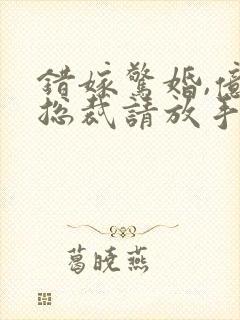 錯嫁驚婚,億
总裁請放手
葛曉燕